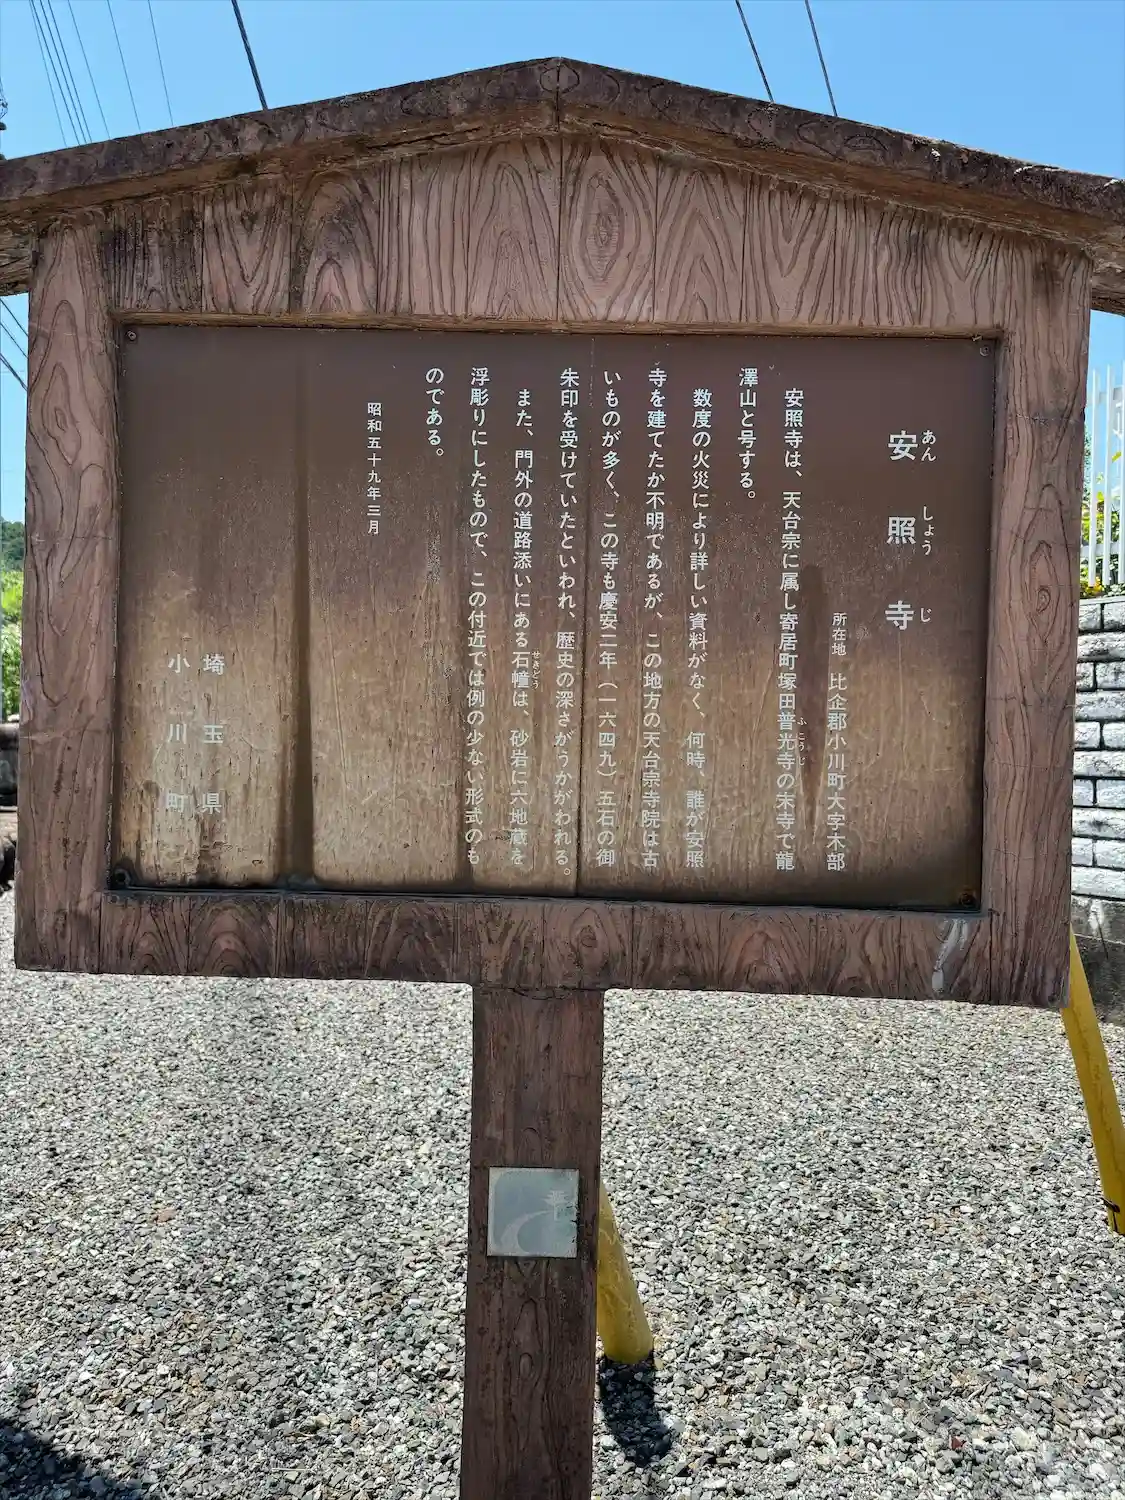 安照寺
あんしょうじ
所在地 比企郡小川町大字木部
安照寺は、天台宗に属し寄居町塚田普光寺の末寺で龍
ふこうじ
澤山と号する。
数度の火災により詳しい資料がなく、何時、誰が安照
寺を建てたか不明であるが、この地方の天台宗寺院は古
いものが多く、この寺も慶安二年(一六四九)五石の御
朱印を受けていたといわれ、歴史の深さがうかがわれる。
また、門外の道路添いにある石幢は、砂岩に六地蔵を
せきどう
浮彫りにしたもので、この付近では例の少ない形式のも
のである。
昭和五十九年三月
埼玉県
小川町